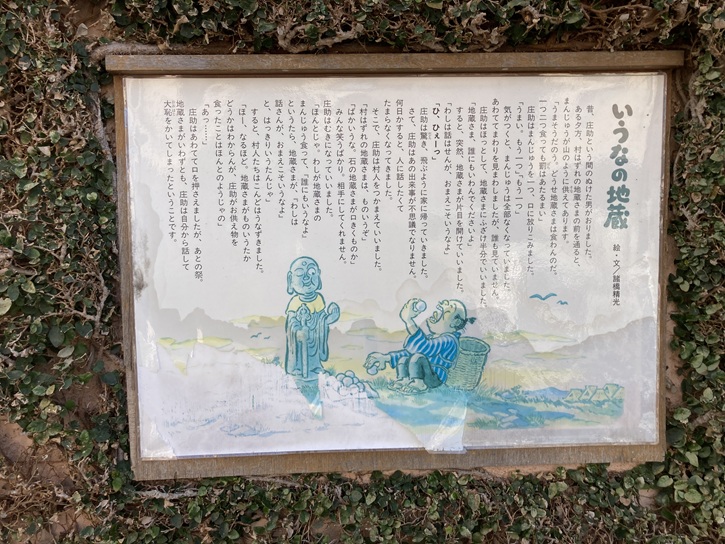 いうなの地蔵
絵・文／諸橋精光
昔、庄助という間のぬけた男がおりました。
ある夕方、村はずれの地蔵さまの前を通ると、
まんじゅうが山のように供えてあります。
「うまそうだのう。どうせ地蔵さまは食わんのだ。
一つ二つ食っても罰はあたるまい」
庄助はまんじゅうを一つ、口に放りこみました。
「うまい、もう一つ、も、もう一つ…」
気がつくと、まんじゅうは全部なくなっていました。
あわててまわりを見まわしましたが、誰も見ていません。
庄助はほっとして、地蔵さまにふざけ半分でいいました。
「地蔵さま、誰にもいわんでくださいよ」
すると、突然、地蔵さまが片目を開けていいました。
「わしは話はせんが、おまえこそいうなよ」
「ひ、ひぇーっ」
庄助は驚き、飛ぶように家に帰っていきました。
さて、庄助はあの出来事が不思議でなりません。
何日かすると、人に話したくて
たまらなくなってきました。
そこで、庄助は村人をつかまえていいました。
「村はずれの地蔵さまは、ものいうぞ」
「ばかいうな、石の地蔵さまが口きくものか」
みんな笑うばかり、相手にしてくれません。
庄助はむきになっていいました。
「ほんとじゃ、わしが地蔵さまの
まんじゅう食って、『誰にもいうなよ』
というたら、地蔵さまが、『わしは
話さんが、おまえこそいうなよ』
と、はっきりいったんじゃ」
すると、村人たちはこんどはうなずきました。
「ほー、なるほど、地蔵さまがものいうたか
どうかはわからんが、庄助がお供え物を
食ったことはほんとのようじゃの」
「あっ……」
庄助はあわてて口を押さえましたが、あとの祭。
地蔵さまがいわずとも、庄助は自分から話して
大恥をかいてしまったということです。